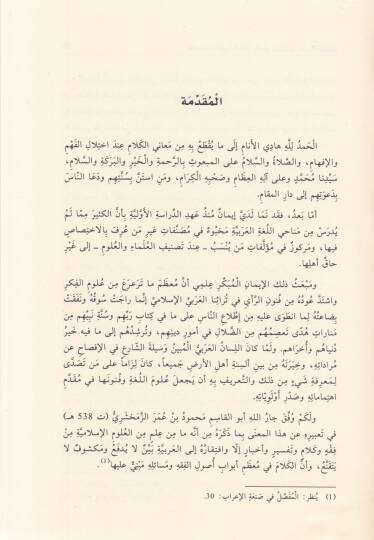 الْمُقَدِّمَة
الْحَمدُ لِلَّهِ هادِي الأَنَامِ إِلَى ما يُقْطَعُ بِهِ مِن مَعانِي الكَلَامِ عِندَ اختِلالِ الفَهْمِ
والإفهامِ، والصَّلاةُ والسَّلامُ على المبعوثِ بِالرَّحمةِ والْخَيْرِ والبَرَكَةِ والسَّلامِ،
سَيِّدِنا مُحَمَّدٍ وعلى آلِهِ العِظَامِ وصَحْبِهِ الْكِرَامِ، ومَنِ استَنَّ بِسُنَّتِهِم ودَعَا النَّاسَ
بِدَعوَتِهِم إلى دارِ المقامِ.
أمّا بَعدُ، فقَد نَمَا لَدَيَّ إيمانٌ مُنذُ عَهدِ الدِّراسةِ الأَوَّلِيَّةِ بِأَنَّ الكثيرَ مِمّا لَمْ
يُدرَسْ مِن مَناحِي اللُّغَةِ العَرَبِيَّةِ مَخبُوءٌ في مُصَنَّفاتِ غيرِ مَن عُرِفَ بِالاختِصاصِ
فيها، ومَركوزٌ في مُؤَلَّفاتِ مَن يُنْسَبُ ـ عِندَ تَصنِيفِ العُلَماءِ والعُلُومِ ـ إلى غَيْرِ
حاقِّ أهلِها.
ومَبْعَثُ ذلك الإيمانِ المُبَكِّرِ عِلمِي أنَّ مُعظَمَ ما تَرَعرَعَ مِن عُلومِ الفِكرِ
واشتَدَّ عُودُهُ مِن فُنونِ الرَّأيِ في تُراثِنا العَرَبِيِّ الإسلاميِّ إنَّما راجَتْ سُوقُهُ ونَفَقَتْ
بِضاعَتُهُ لِما انطَوَى عليهِ مِن إطْلاعِ النَّاسِ على ما في كِتابِ رَبِّهِم وسُنَّةِ نَبِيِّهِم مِن
مَناراتِ هُدًى تَعصِمُهُم مِن الضَّلالِ في أُمورِ دِينِهِم، وتُرشِدُهُم إلى ما فيه خَيرُ
دُنياهُم وأُخراهُم. ولَمّا كانَ اللِّسانُ العَرَبِيُّ المُبينُ وَسِيلَةَ الشّارِعِ في الإفصاحِ عن
مُراداتِهِ، وخِيرَتَهُ مِن بينِ ألسِنةِ أهلِ الأرضِ جَميعاً، كانَ لِزاماً على مَن تَصَدَّى
لِمَعرِفةِ شَيءٍ مِن ذلك والتَّعريفِ بِهِ أن يَجعلَ عُلومَ اللُّغةِ وفُنونَها في مُقَدَّمِ
اهتِماماتِهِ وصَدْرِ أَوْلَوِيّاتِهِ.
ولَكَمْ وُفِّقَ جارُ اللهِ أبو القاسِمِ مَحمودُ بنُ عُمَرَ الزَّمَخشَرِيُّ (ت 538 هـ)
في تَعبيرِهِ عن هذا المعنَى بِما ذَكَرَهُ مِن أنَّه ما مِن عِلمٍ مِن العُلومِ الإسلاميَّةِ مِنْ
فِقْهٍ وكَلامٍ وتَفسيرٍ وأخبارٍ إلّا وافتِقارُهُ إلى العربيَّةِ بَيِّنٌ لا يُدفَعُ ومَكشوفٌ لا
يَتَقَنَّعُ، وأنَّ الكلامَ في مُعظَمِ أبوابِ أُصولِ الفِقهِ ومَسائلِهِ مَبْنِيٌّ عليها(1).
(1) يُنظَر: الْمُفَصَّلُ في صَنعَةِ الإعراب: 30.